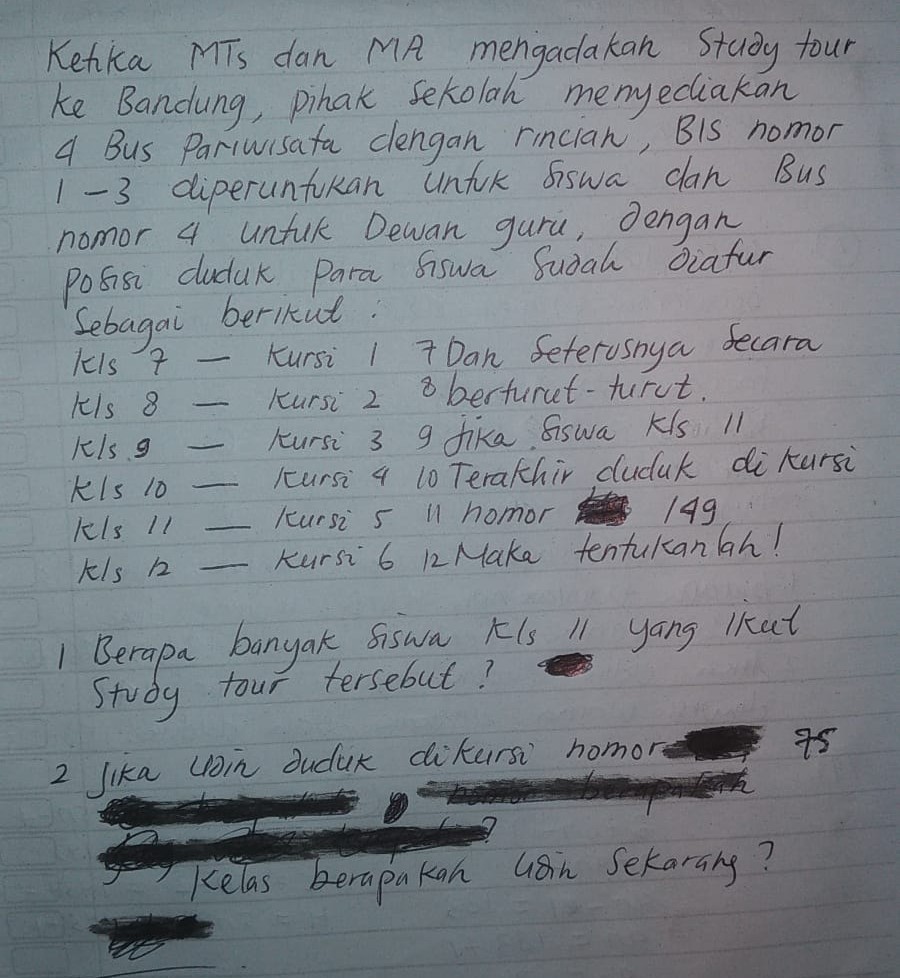 Ketika MTs dan MA mengadakan Study tour
ke Bandung, pihak sekolah menyediakan
4 Bus Pariwisata dengan rincian, BIS nomor
1-3 diperuntukan untuk siswa dan Bus
nomor 4 untuk Dewan guru, dengan
posisi duduk para siswa sudah diatur
sebagai berikut :
Kls 7 — Kursi 1 7 Dan seterusnya secara
Kls 8 — Kursi 2 8 berturut-turut.
Kls 9 — Kursi 3 9 Jika siswa Kls 11
Kls 10 — Kursi 4 10 Terakhir duduk di kursi
Kls 11 — Kursi 5 11 nomor 149
Kls 12 — Kursi 6 12 Maka tentukanlah!
1 Berapa banyak siswa Kls 11 yang ikut
Study tour tersebut?
2 Jika Udin duduk dikursi nomor 75
Kelas berapakah Udin sekarang?